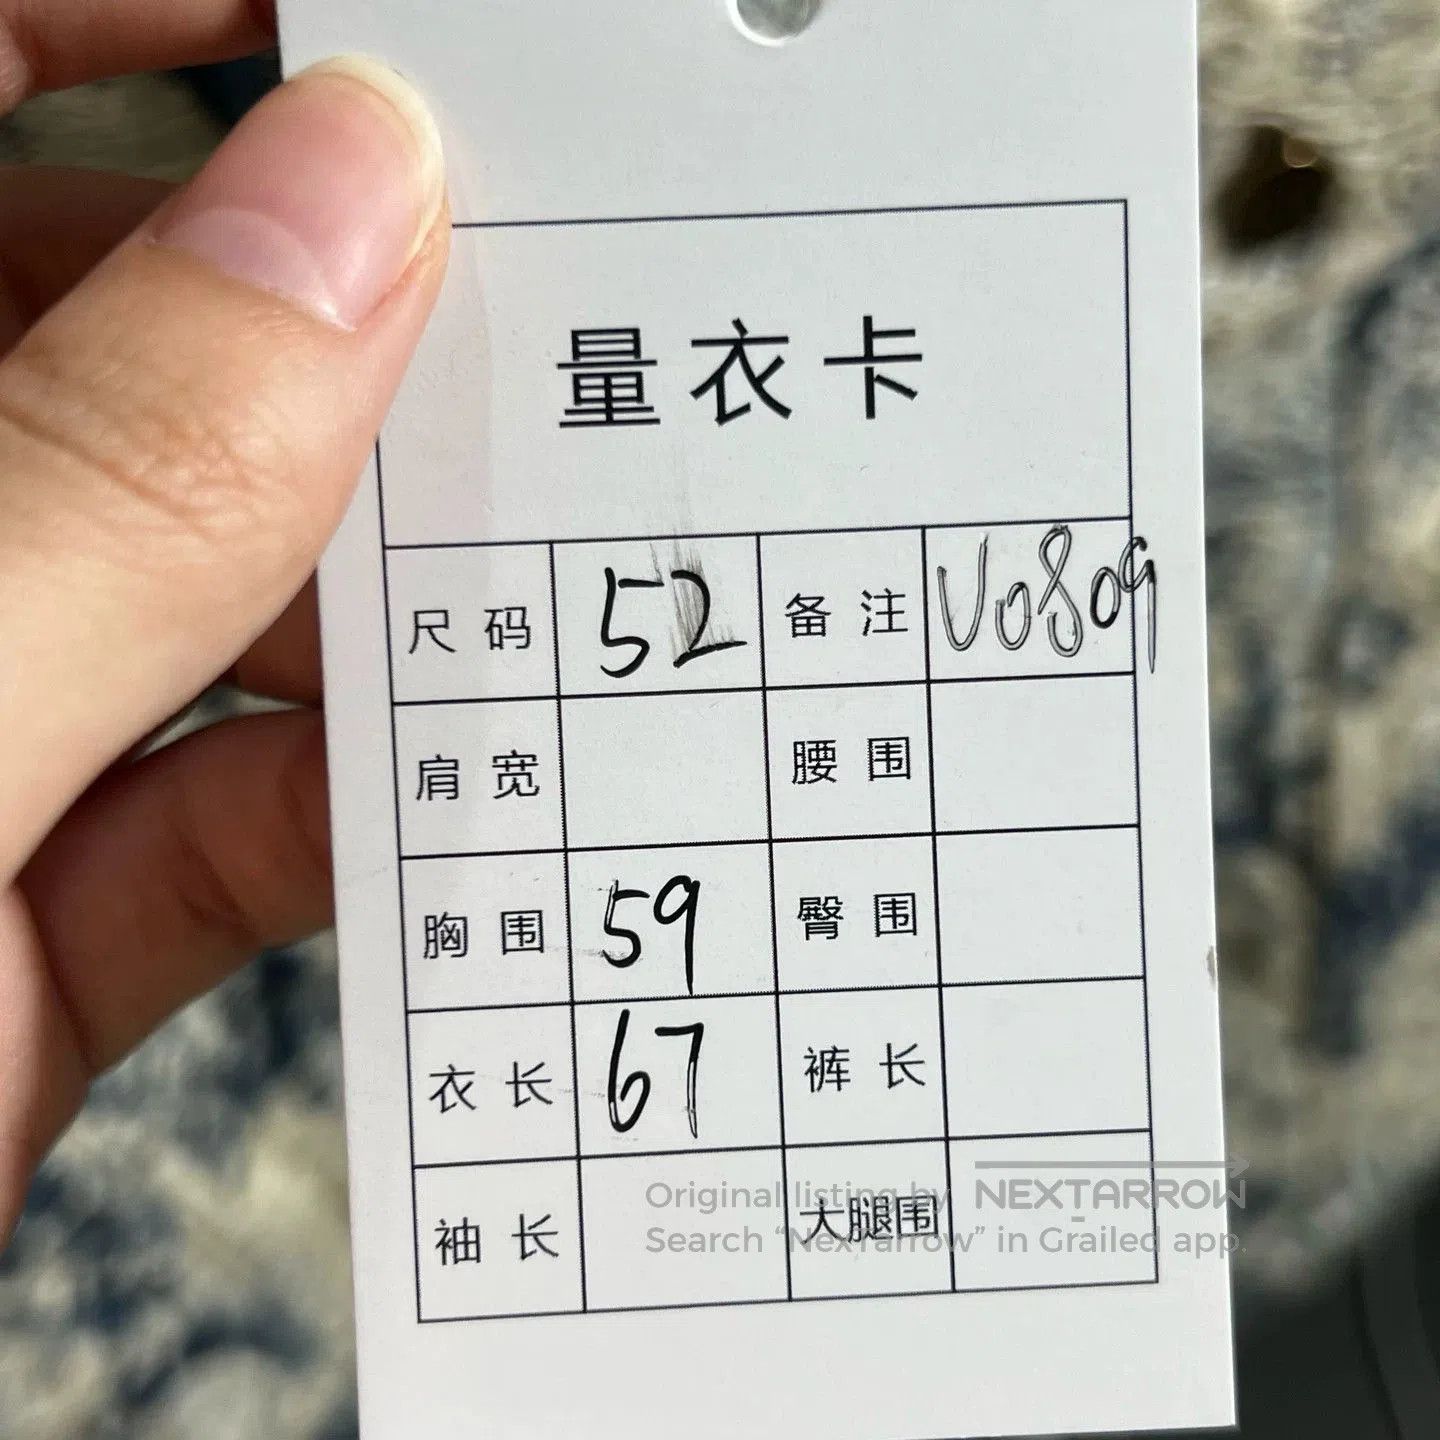 量衣卡
尺码 52 备注 V0809
肩宽 腰围
胸围 59 臀围
衣长 67 裤长
袖长 大腿围
Original listing by NEXTARROW
Search “NexTarrow” in Grailed app.